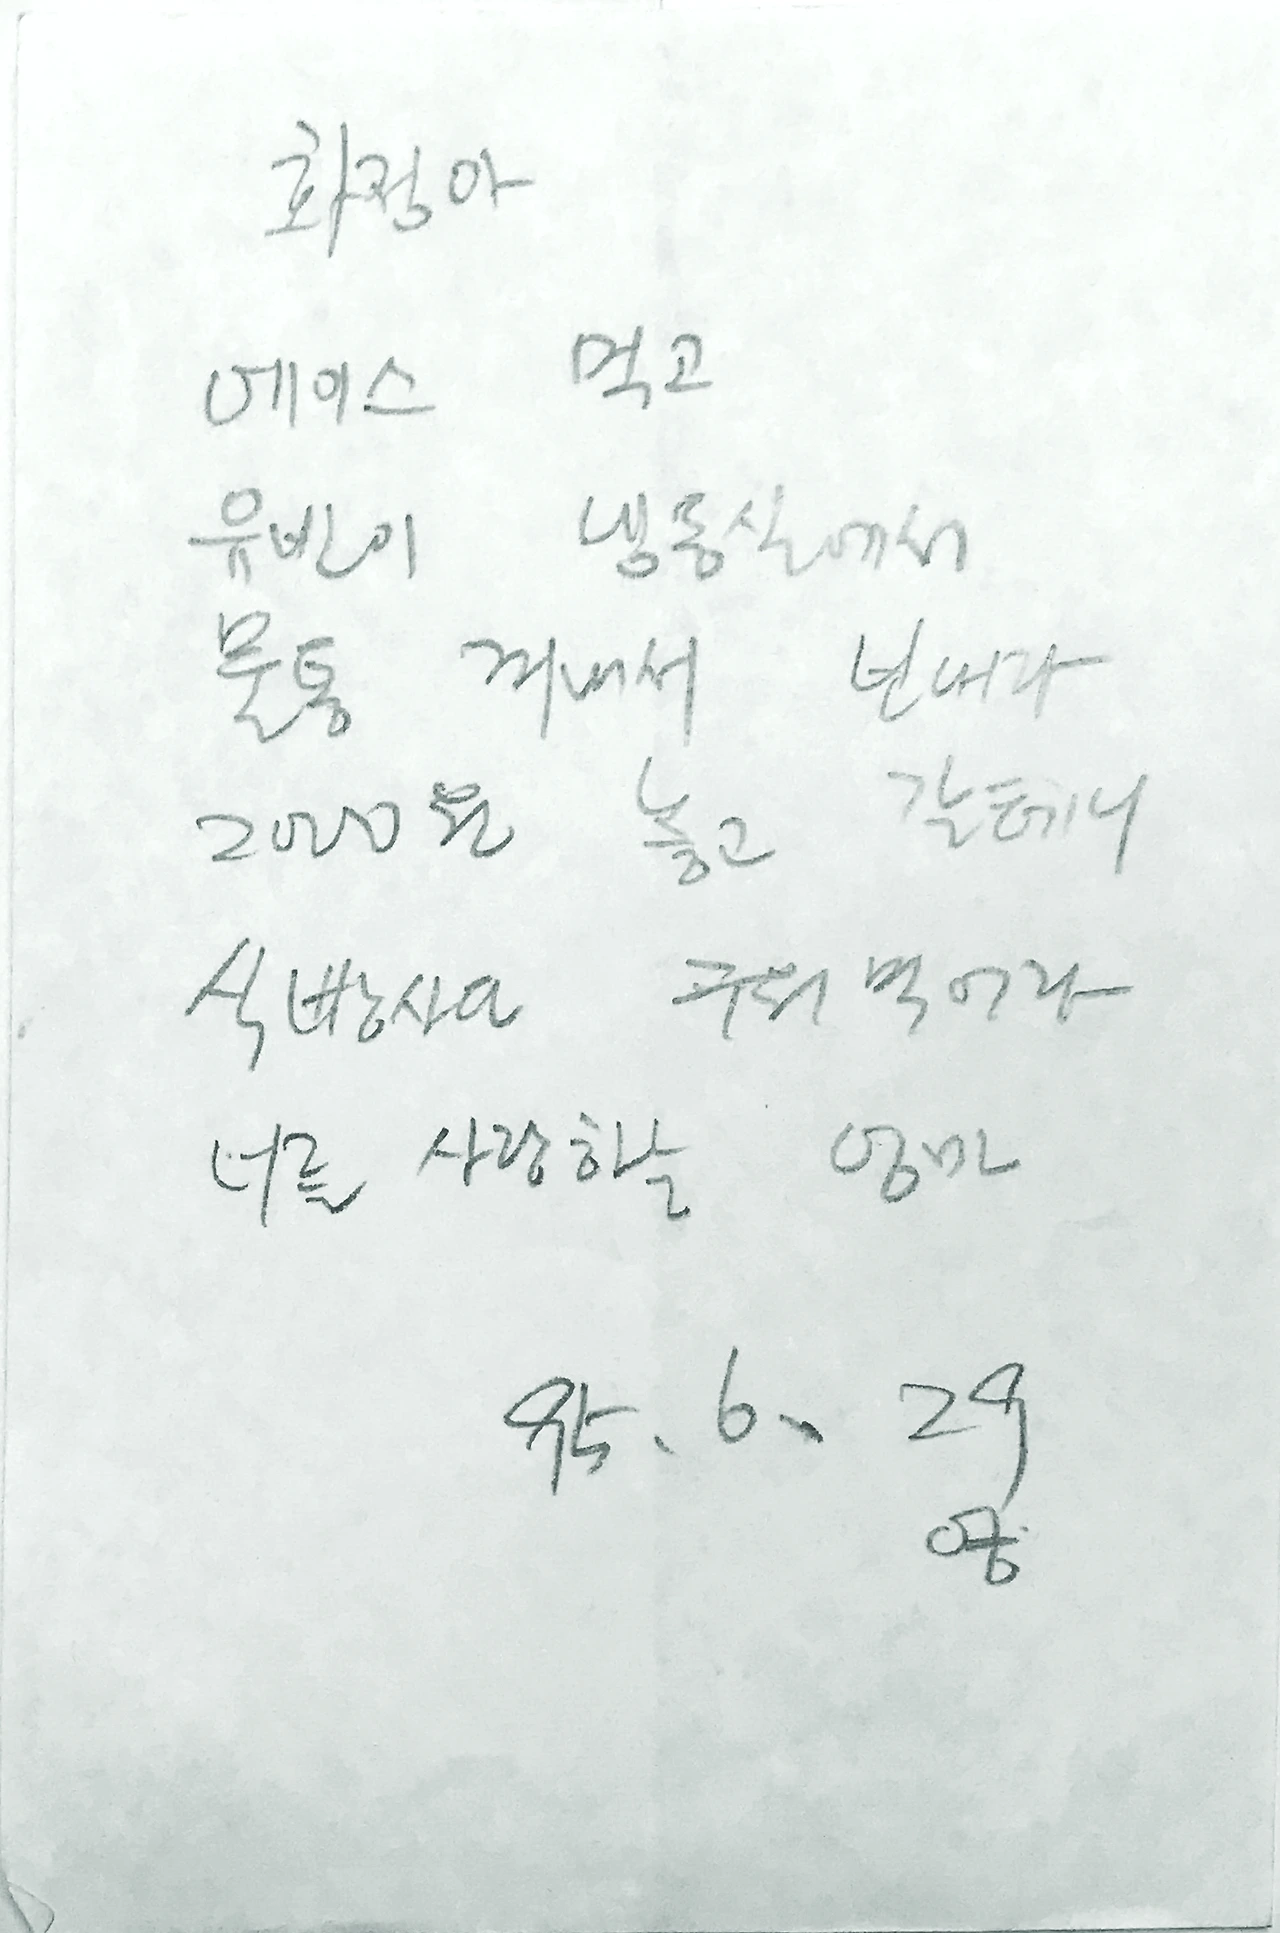 화정아
에이스 먹고
유빈이 냉동실에서
물통 꺼내서 보내라
2000원 놓고 갈테니
식빵사다 구워먹어라
너를 사랑하는 엄마
95. 6. 29